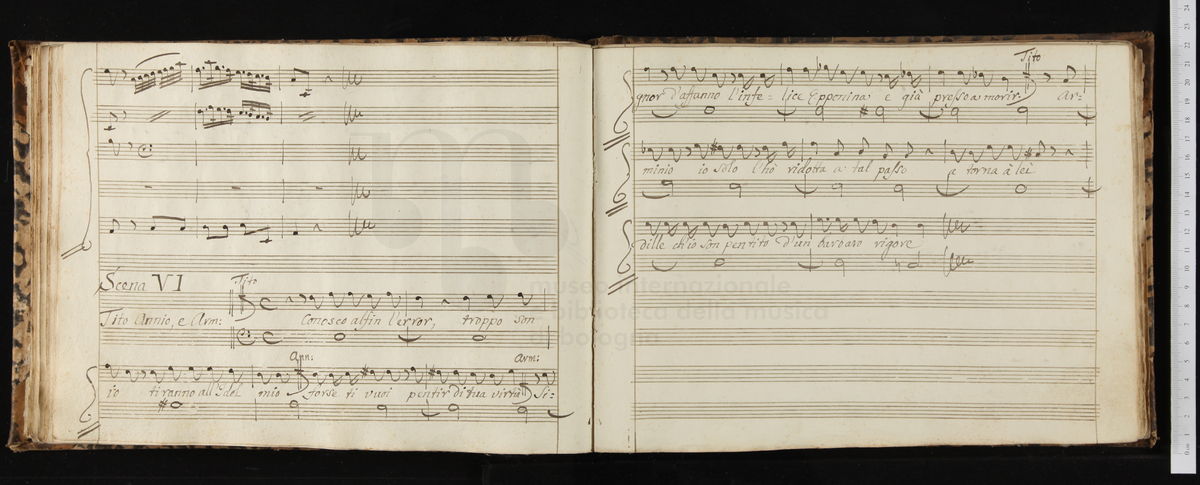 Scena VI
Tito
Tito Annio, e Arm: Conosco alfin l'error, troppo son
Ann: Arm:
io tiranno all' Idol mio forse ti vuoi pentir di tua virtù Si-
Tito
gnor d'affanno l'infe- lice Epponina è già presso a morir. Ar-
minio io solo l'hò ridotta a tal passo e torna à lei
dille ch'io son pentito d'un barbaro rigore
museo internazionale
e biblioteca della musica
di bologna